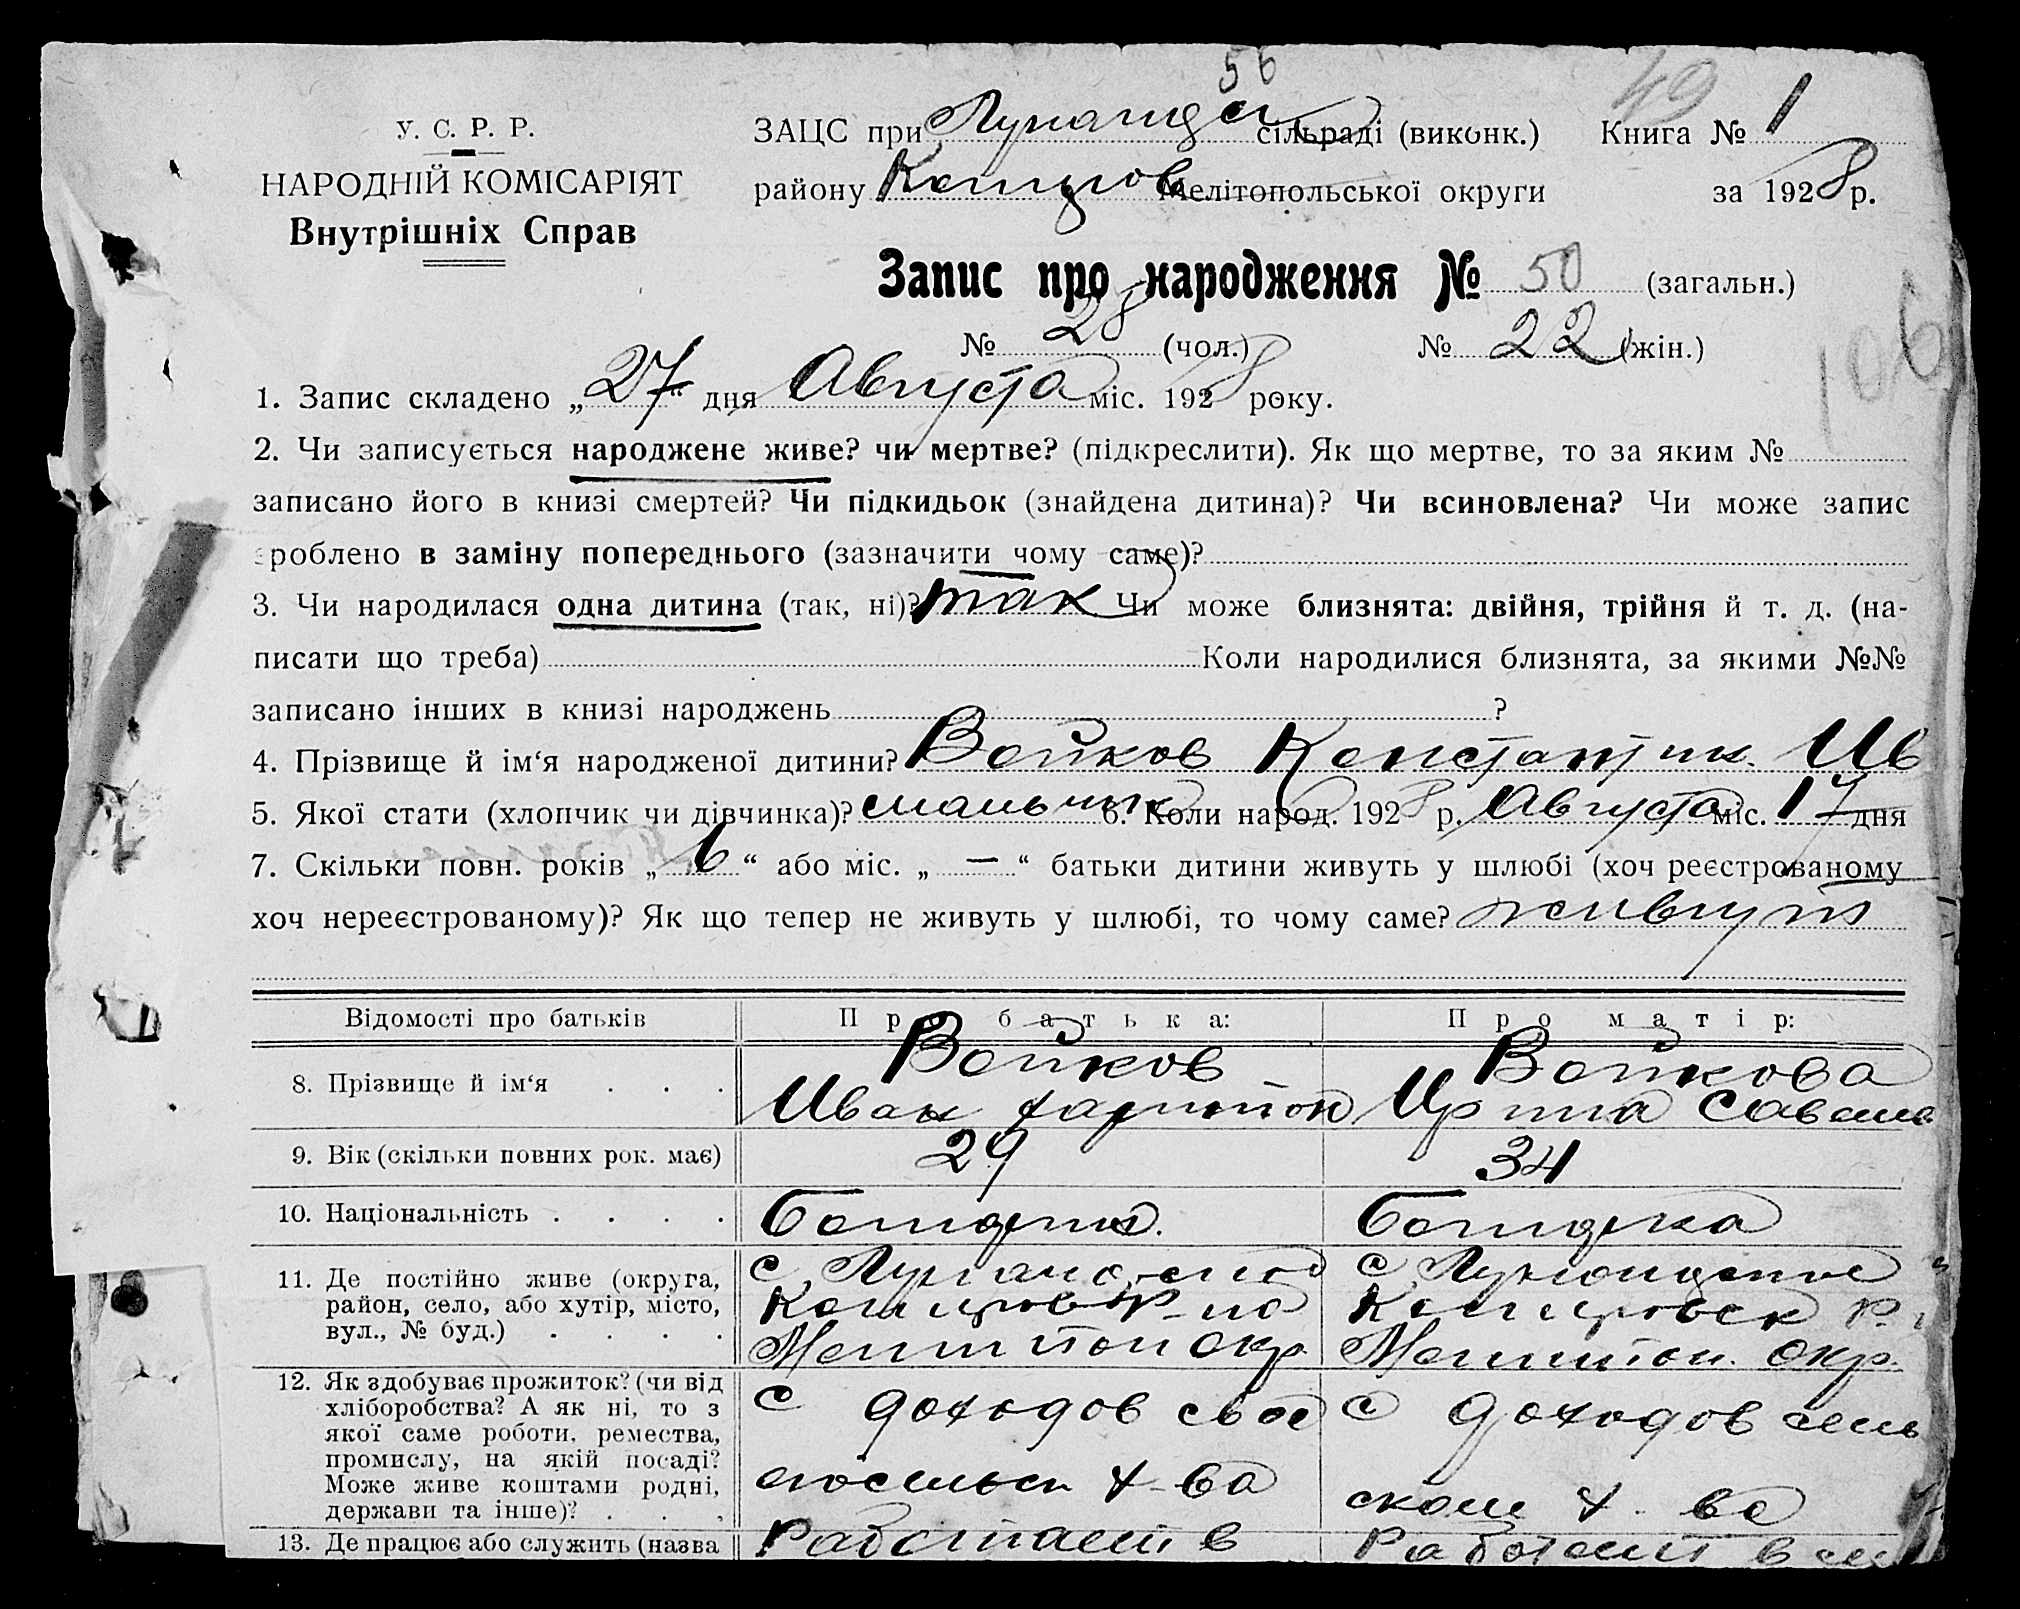 56
49
У. С. Р. Р.
НАРОДНІЙ КОМІСАРІЯТ
Внутрішніх Справ
ЗАЦС при сільраді (виконк.) Книга № 1
району Мелітопольської округи за 1928 р.
Запис про народження № 50 (загальн.)
№ 28 (чол.) № 22 (жін.)
106
1. Запис складено „27“ дня Августа міс. 1928 року.
2. Чи записується народжене живе? чи мертве? (підкреслити). Як що мертве, то за яким №
записано його в книзі смертей? Чи підкидьок (знайдена дитина)? Чи всиновлена? Чи може запис
зроблено в заміну попереднього (зазначити чому саме)?
3. Чи народилася одна дитина (так, ні)? так Чи може близнята: двійня, трійня й т. д. (на-
писати що треба) Коли народилися близнята, за якими №№
записано інших в книзі народжень ?
4. Прізвище й ім‘я народженої дитини? Войков Константин. Ив
5. Якої стати (хлопчик чи дівчинка)? мальчик 6. Коли народ. 1928 р. Августа міс. 17 дня
7. Скільки повн. років „6“ або міс. „—“ батьки дитини живуть у шлюбі (хоч реєстрованому
хоч нереєстрованому)? Як що тепер не живуть у шлюбі, то чому саме? живут
Відомості про батьків Про батька: Про матір:
8. Прізвище й ім‘я . . . Войков Войкова
Иван Харитон Ирина Савел
9. Вік (скільки повних рок. має) 29 34
10. Національність . . . . Болгарин. Болгарка
11. Де постійно живе (округа, с с
район, село, або хутір, місто, р-на Р.
вул., № буд.) . . . . Мелитоп окр Мелитоп. окр.
12. Як здобуває прожиток? (чи від
хліборобства? А як ні, то з с доходов свое с доходов сель
якої саме роботи, ремества,
промислу, на якій посаді?
Може живе коштами родні, го сельск х-ва ского х-ва
держави та інше)? . . .
13. Де працює або служить (назва Работает в Работает в